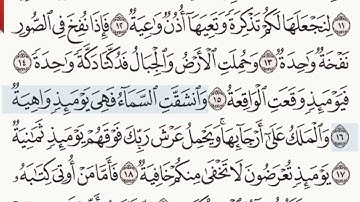 ١١ لِنَجْعَلَهَا لَكُمْ تَذْكِرَةً وَتَعِيَهَا أُذُنٌ وَٰعِيَةٌ ١٢ فَإِذَا نُفِخَ فِى ٱلصُّورِ
نَفْخَةٌ وَٰحِدَةٌ ١٣ وَحُمِلَتِ ٱلْأَرْضُ وَٱلْجِبَالُ فَدُكَّتَا دَكَّةً وَٰحِدَةً ١٤
فَيَوْمَئِذٍ وَقَعَتِ ٱلْوَاقِعَةُ ١٥ وَٱنشَقَّتِ ٱلسَّمَآءُ فَهِىَ يَوْمَئِذٍ وَاهِيَةٌ
١٦ وَٱلْمَلَكُ عَلَىٰٓ أَرْجَآئِهَا ۚ وَيَحْمِلُ عَرْشَ رَبِّكَ فَوْقَهُمْ يَوْمَئِذٍ ثَمَٰنِيَةٌ
١٧ يَوْمَئِذٍ تُعْرَضُونَ لَا تَخْفَىٰ مِنكُمْ خَافِيَةٌ ١٨ فَأَمَّا مَنْ أُوتِىَ كِتَٰبَهُۥ